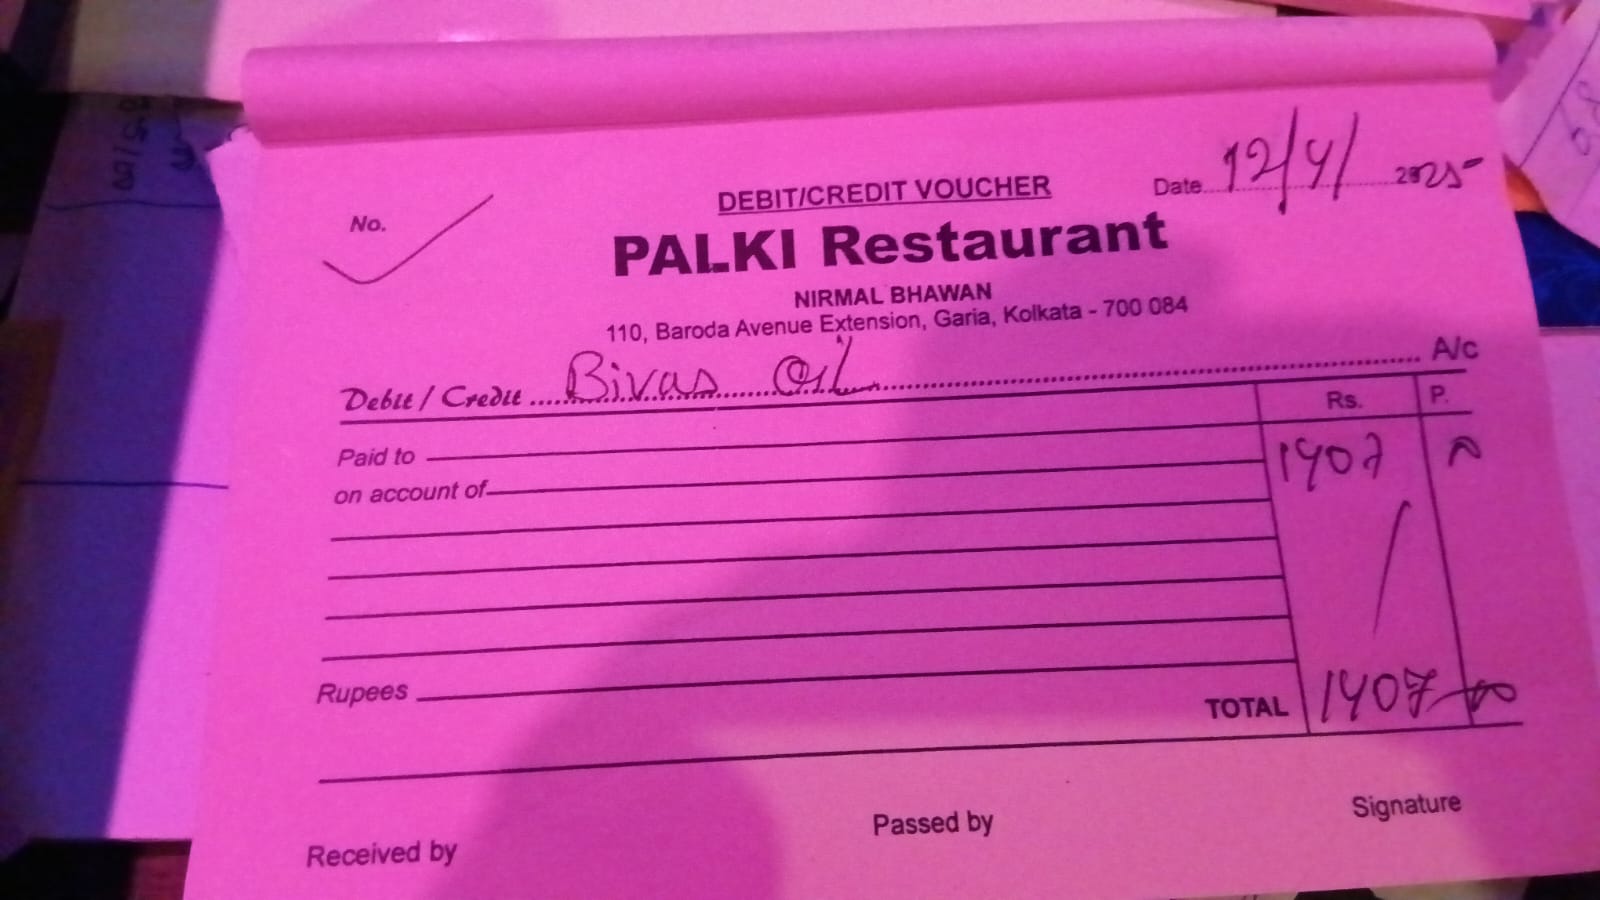 DEBIT/CREDIT VOUCHER
No.
Date 12/4/ 2025
PALKI Restaurant
NIRMAL BHAWAN
110, Baroda Avenue Extension, Garia, Kolkata - 700 084
Debit / Credit Bivas Oil A/c
Rs. P.
Paid to
1407
on account of
Rupees
TOTAL 1407 00
Passed by
Signature
Received by